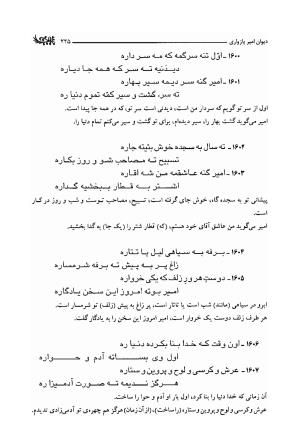 دیوان امیر پازواری
۲۳۵
۱۶۰۰ - اوّل تنه سرگمه که مه سردار ه
دیدنیه ته سر که همه جا دیاره
۱۶۰۱ - امیر گنه سر دیمه سیر بهاره
ته سر، گشت و سیر کمّه تموم دنیا ره
اول از سر تو گویم که سردار من است، دیدنی است سر تو، که در همه جا پیدا است.
امیر می‌گوید گشت بهار را، سیر دیده‌ام، برای تو گشت و سیر می‌کنم تمام دنیا را.
۱۶۰۲ - ته سال به سجده خوش بئیته جاره
تسبیح ته مصاحب شو و روز بکاره
۱۶۰۳ - امیر گنه عاشقمه شه آقاره
اشتر به قطار ببخشیه گداره
پیشانی تو به سجده گاه، خوش جای گرفته است، تسبیح، مصاحب توست و شب و روز در کار است.
امیر می‌گوید من عاشق آقای خود هستم، (که) قطار شتر را (یک جا) به گدا بخشید.
۱۶۰۴ - برفه به سیاهی لیل یا تتاره
زاغ پر به پیش ته برفه شرمساره
۱۶۰۵ - دوست هر ور زلف که یکی خرواره
امیر بوته امروز این سخن یادگاره
ابرو در سیاهی (مانند) شب است یا تاتار است، پر زاغ به پیش (زلف) تو شرمسار است.
هر طرف زلف دوست یک خروار است، امیر امروز این سخن را به یادگار گفت.
۱۶۰۶ - اون وقت که خدا بنا بکرده دنیاره
اول وی بساته آدم و حواره
۱۶۰۷ - عرش و کرسی و لوح و پروین و ستاره
هرگز ندیمه ته صورت آدمیزاره
آن زمانی که خدا دنیا را بنا کرد، اول بار او آدم و حوا را ساخت.
عرش و کرسی و لوح و پروین و ستاره (را ساخت)، (از آن زمان) هرگز هم چهره‌ی تو آدمی‌زادی ندیدم.